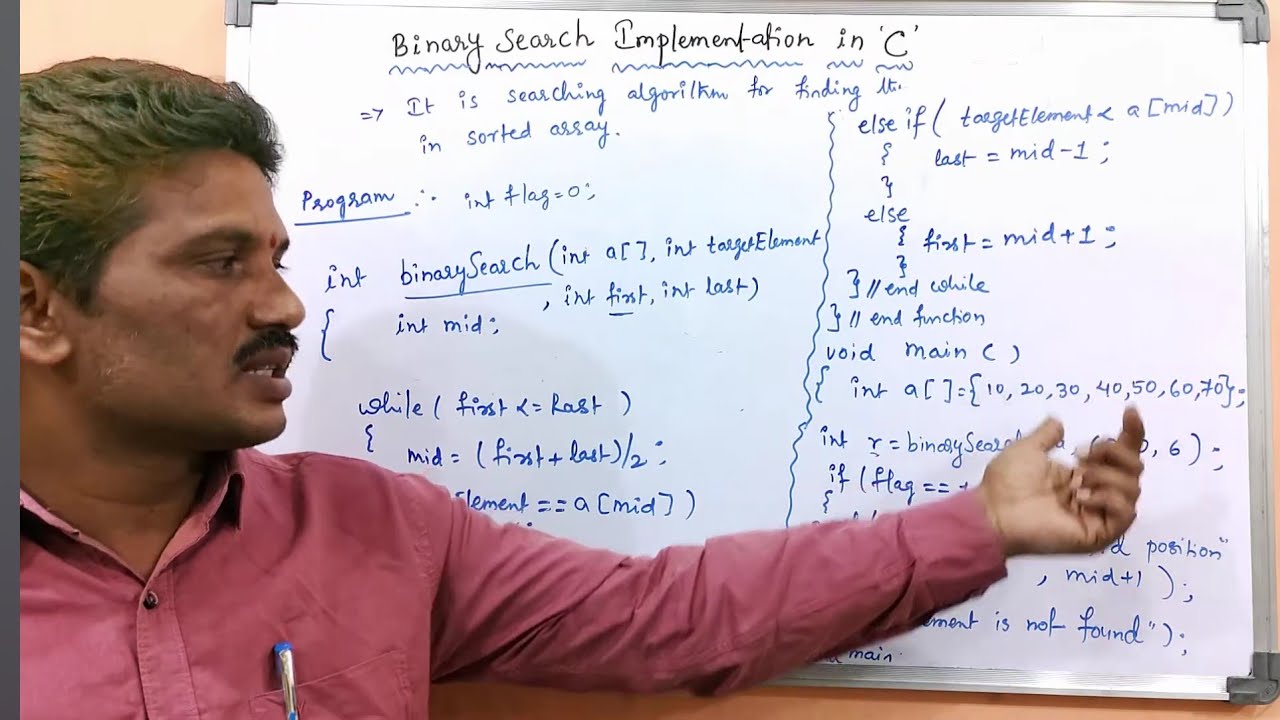 Binary Search Implementation in 'C'
=> It is searching algorithm for finding
in sorted array.
Program : int flag=0;
int binarySearch(int a[], int targetElement
, int first, int last)
{ int mid;
while( first <= last )
{
mid = (first+last)/2;
Element == a[mid] )
else if( targetElement < a[mid])
{ last = mid-1;
}
else
{ first = mid+1;
}
} //end while
} // end function
void main( )
{ int a[ ]={10, 20, 30, 40, 50, 60, 70};
int r = binarySearch , 6 );
if (flag ==
{
position"
, mid+1 );
is not found");
main.